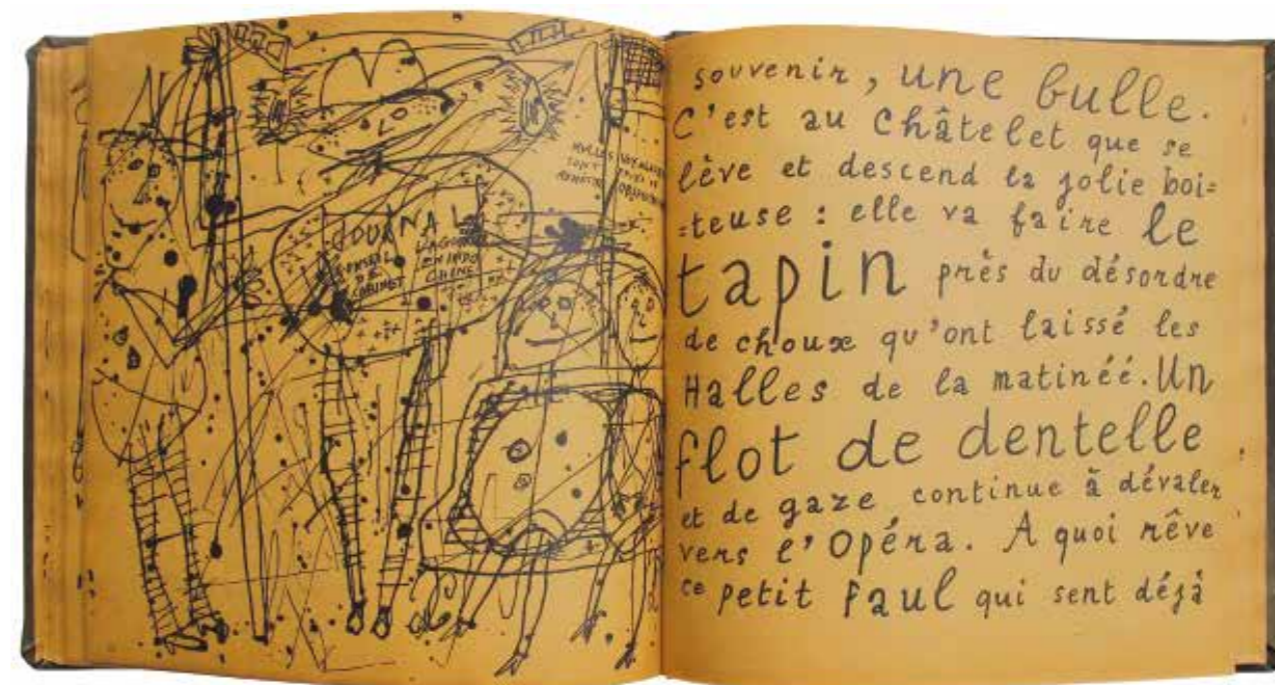 JOURNAL
CONSEIL
DE
CABINET
LA GUERRE
EN INDO
CHINE
souvenir, une bulle.
C'est au Châtelet que se
lève et descend la jolie boi=
=teuse : elle va faire le
tapin près du désordre
de choux qu'ont laissé les
Halles de la matinéé. Un
flot de dentelle
et de gaze continue à dévaler
vers l'Opéra. A quoi rêve
ce petit Faul qui sent déjà